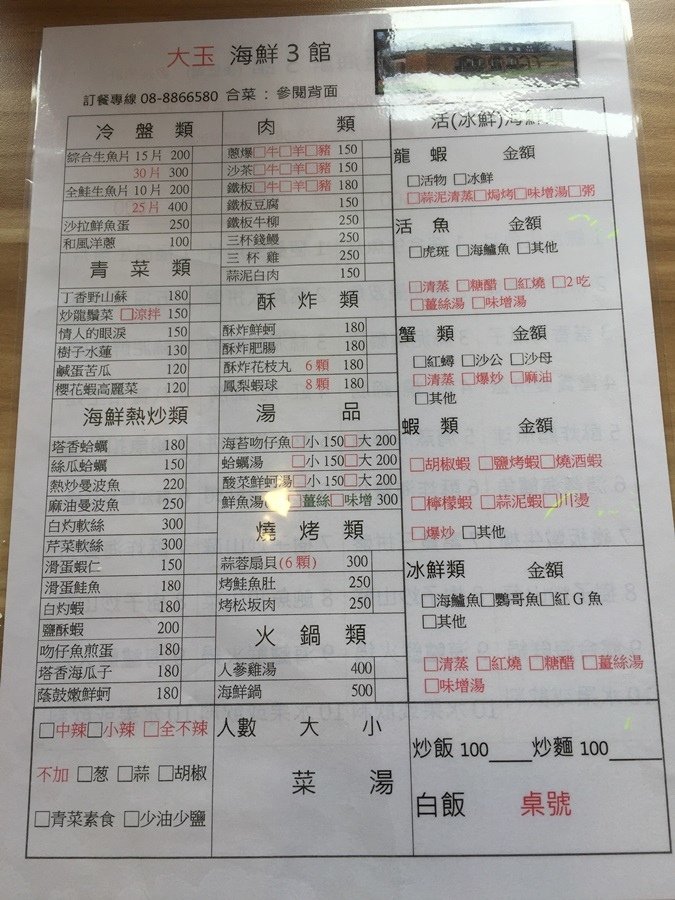 大玉 海鮮3館
訂餐專線 08-8866580 合菜：參閱背面
冷盤類
綜合生魚片 15片 200
30片 300
全鮭生魚片 10片 200
25片 400
沙拉鮮魚蛋 250
和風洋蔥 100
青菜類
丁香野山蘇 180
炒龍鬚菜 □涼拌 150
情人的眼淚 150
樹子水蓮 130
鹹蛋苦瓜 120
櫻花蝦高麗菜 120
海鮮熱炒類
塔香蛤蠣 180
絲瓜蛤蠣 150
熱炒曼波魚 220
麻油曼波魚 250
白灼軟絲 300
芹菜軟絲 300
滑蛋蝦仁 150
滑蛋鮭魚 180
白灼蝦 180
鹽酥蝦 200
吻仔魚煎蛋 180
塔香海瓜子 180
蔭鼓嫩鮮蚵 180
肉類
蔥爆□牛□羊□豬 150
沙茶□牛□羊□豬 150
鐵板□牛□羊□豬 180
鐵板豆腐 150
鐵板牛柳 250
三杯錢鰻 250
三杯雞 250
蒜泥白肉 150
酥炸類
酥炸鮮蚵 180
酥炸肥腸 180
酥炸花枝丸 6顆 180
鳳梨蝦球 8顆 180
湯品
海苔吻仔魚□小150□大200
蛤蠣湯 □小150□大200
酸菜鮮蚵湯□小150□大200
鮮魚湯 □薑絲□味增 300
燒烤類
蒜蓉扇貝(6顆) 300
烤鮭魚肚 250
烤松坂肉 250
火鍋類
人蔘雞湯 400
海鮮鍋 500
活(冰鮮)海鮮類
龍蝦 金額
□活物 □冰鮮
□蒜泥清蒸□焗烤□味增湯□粥
活魚 金額
□虎斑 □海鱸魚 □其他
□清蒸 □糖醋 □紅燒 □2吃
□薑絲湯 □味增湯
蟹類 金額
□紅蟳 □沙公 □沙母
□清蒸 □爆炒 □麻油
□其他
蝦類 金額
□胡椒蝦 □鹽烤蝦□燒酒蝦
□檸檬蝦 □蒜泥蝦□川燙
□爆炒 □其他
冰鮮類 金額
□海鱸魚□鸚哥魚□紅G魚
□其他
□清蒸 □紅燒 □糖醋 □薑絲湯
□味增湯
□中辣□小辣 □全不辣
不加 □蔥 □蒜 □胡椒
□青菜素食 □少油少鹽
人數 大 小
菜 湯
炒飯 100____炒麵 100____
白飯 桌號